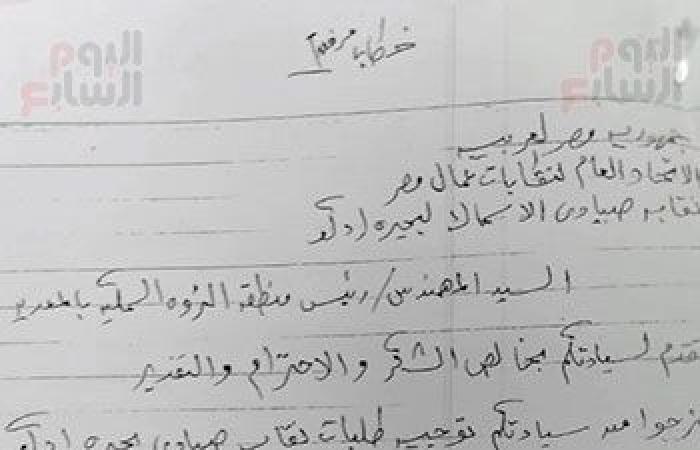 اليوم السابع
اليوم السابع
خطاب مرفوع
جمهورية مصر العربية
الاتحاد العام لنقابات عمال مصر
نقابة صيادى الاسماك لبحيره ادكو
السيد المهندس / رئيس منطقه الثروه السمكيه بالمعديه
نتقدم لسيادتكم بخالص الشكر والاحترام والتقدير
نرجوا من سيادتكم توجيه طلبات نقابه صيادى بحيره ادكو